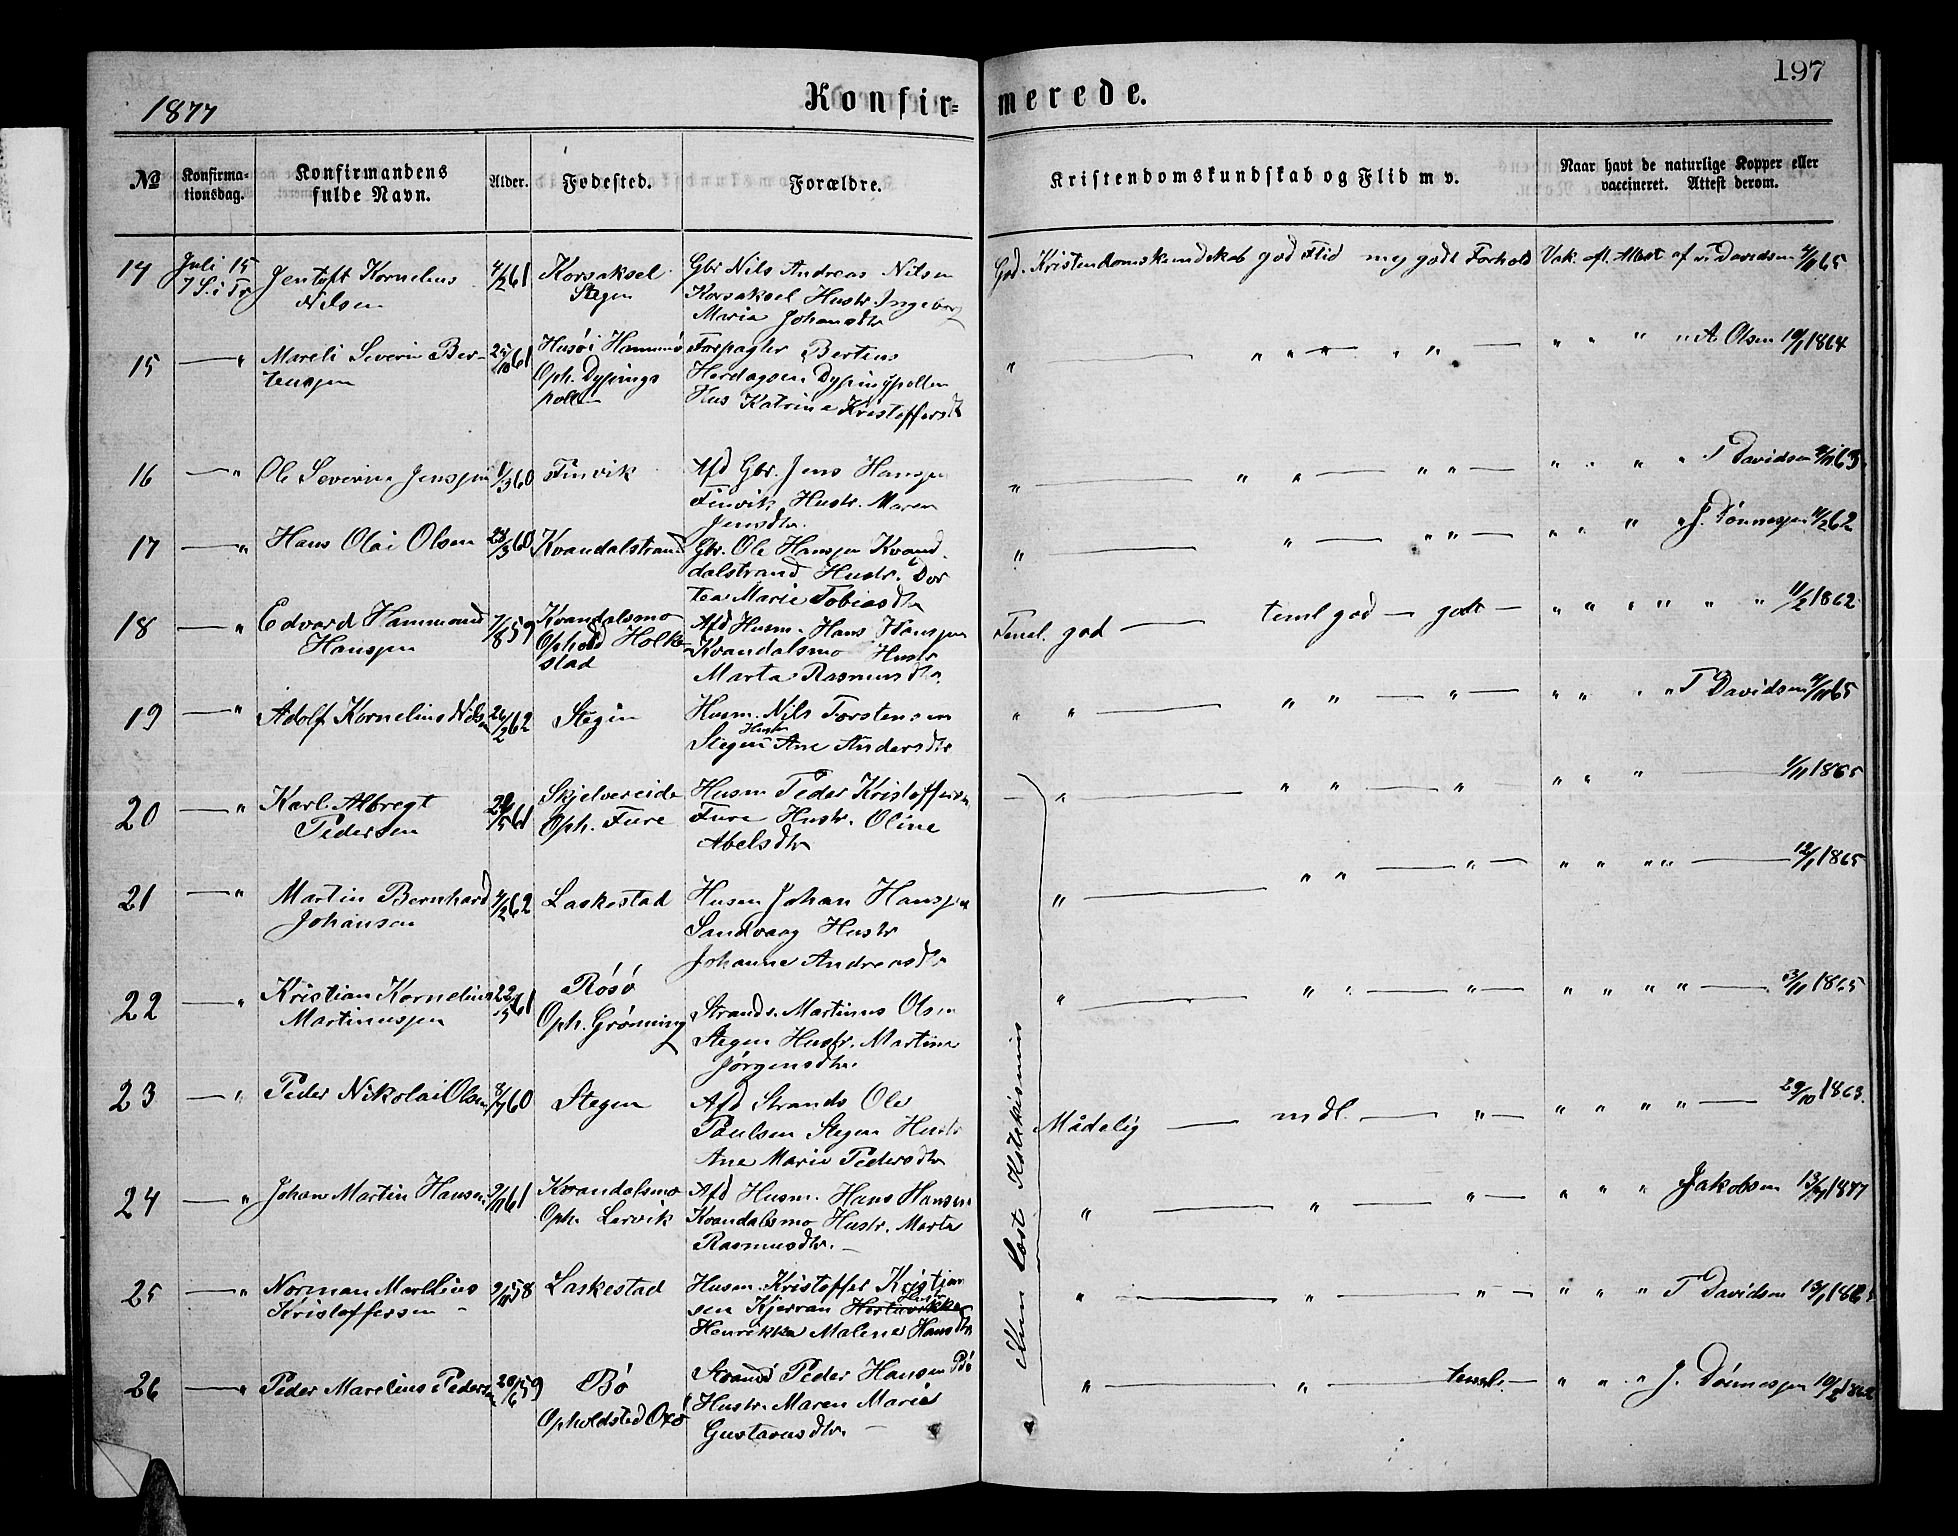 197
1877
Konfir=
merede.
№
Konfirma-
tionsdag.
Konfirmandens
fulde Navn.
Alder.
Fødested.
Forældre.
Kristendomskundskab og Flid m v.
Naar havt de naturlige Kopper eller
vaccineret. Attest derom.
14 Juli 15 Jentoft Kornelius 4/2 61 Korsaksel Gbr Nils Andreas Nilsen God Kristendomskundskab god Flid meg godt Forhold Vak. afl. Attest af T. Davidsen 4/11 65
7 S. i Tr Nilsen Stegen Korsaksel Hustr Ingeborg
Maria Johansdtr
15 — " Mareli Severin Ber- 25/10 61 Husø i Hammerø Forpagter Bertius " — " " — " " — " " " " A Olsen 10/1 1864
tensen Oph. Dypings Herdagsen Dypingpollen
pollen Hus Katrine Kristoffersdt
16 — " Ole Severin Jensen 1/3 60 Finvik Afd Gbr. Jens Hansen " — " " — " " — " " " " T Davidsen 2/11 63
Finvik Hustr. Maren
Jensdtr.
17 — " Hans Olai Olsen 28/3 60 Kvandalstrand Gbr. Ole Hansen Kvand- " — " — " " — " " " " J. Dønnesen 11/2 62
dalstrand Hustr. Dor
tea Marie Tobiasdtr
18 — " Edvard Hammond 7/8 59 Kvandalsmo Afd Husm. Hans Hansen Temel. god — teml god — godt — " " " " " " 11/2 1862
Hansen Ophold Holke- Kvandalsmo Hustr
stad Marta Rasmusdtr
19 — " Adolf Kornelius Nilsen 26/2 62 Stegen Husm. Nils Torstensen " " — " " — " — " " " " T Davidsen 4/11 65
Hustr
Stegen Ane Andersdtr
20 — " Karl Albregt 22/5 61 Skjelvereide Husm Peder Kristoffersen " — " " — " — " " " — 1/11 1865
Pedersen Oph. Fure Fure Hustr. Oline
Abelsdtr
21 — " Martin Bernhard 4/2 62 Laskestad Husm Johan Hansen " — " " — " — " " " " — 12/1 1865
Johansen Sandvaag Hustr
Johanne Andreasdtr
22 — " Kristian Kornelius 22/5 61 Røsø Strands. Martinus Olsen " — " " — " — " " " " — 3/11 1865
Martinusen Oph. Grønning Stegen Hustr. Martine
Jørgensdtr.
23 — " Peder Nikolai Olsen 8/7 60 Stegen Afd Strands Ole Mådelig — mdl — " — " " " " — 29/10 1863.
Paulsen Stegen Hustr
Ane Marie Pedersdtr
24 — " Johan Martin Hansen 9/11 61 Kvandalsmo Afd Husm. Hans Hansen " — " — " — " " " Jakobsen 13/7 1877
Oph. Lervik Kvandalsmo Hustr. Marta
Rasmusdtr. —
25 — " Norman Martilius 9/4 58 Laskestad Husm. Kristoffer Kristian " — " — " — " " " T Davidsen
Kristoffersen sen Kjerran Hustr
Henrikka Malene Hansdtr
26 — " Peder Marelius Pedersen 20/6 59 Bø Strands Peder Hansen Bø " — " — teml. — " " " J. Dønnesen 10/2 1862
Opholdsted Hustr. Maren Marie
Gustavusdtr. —
Kun læst Katekismus